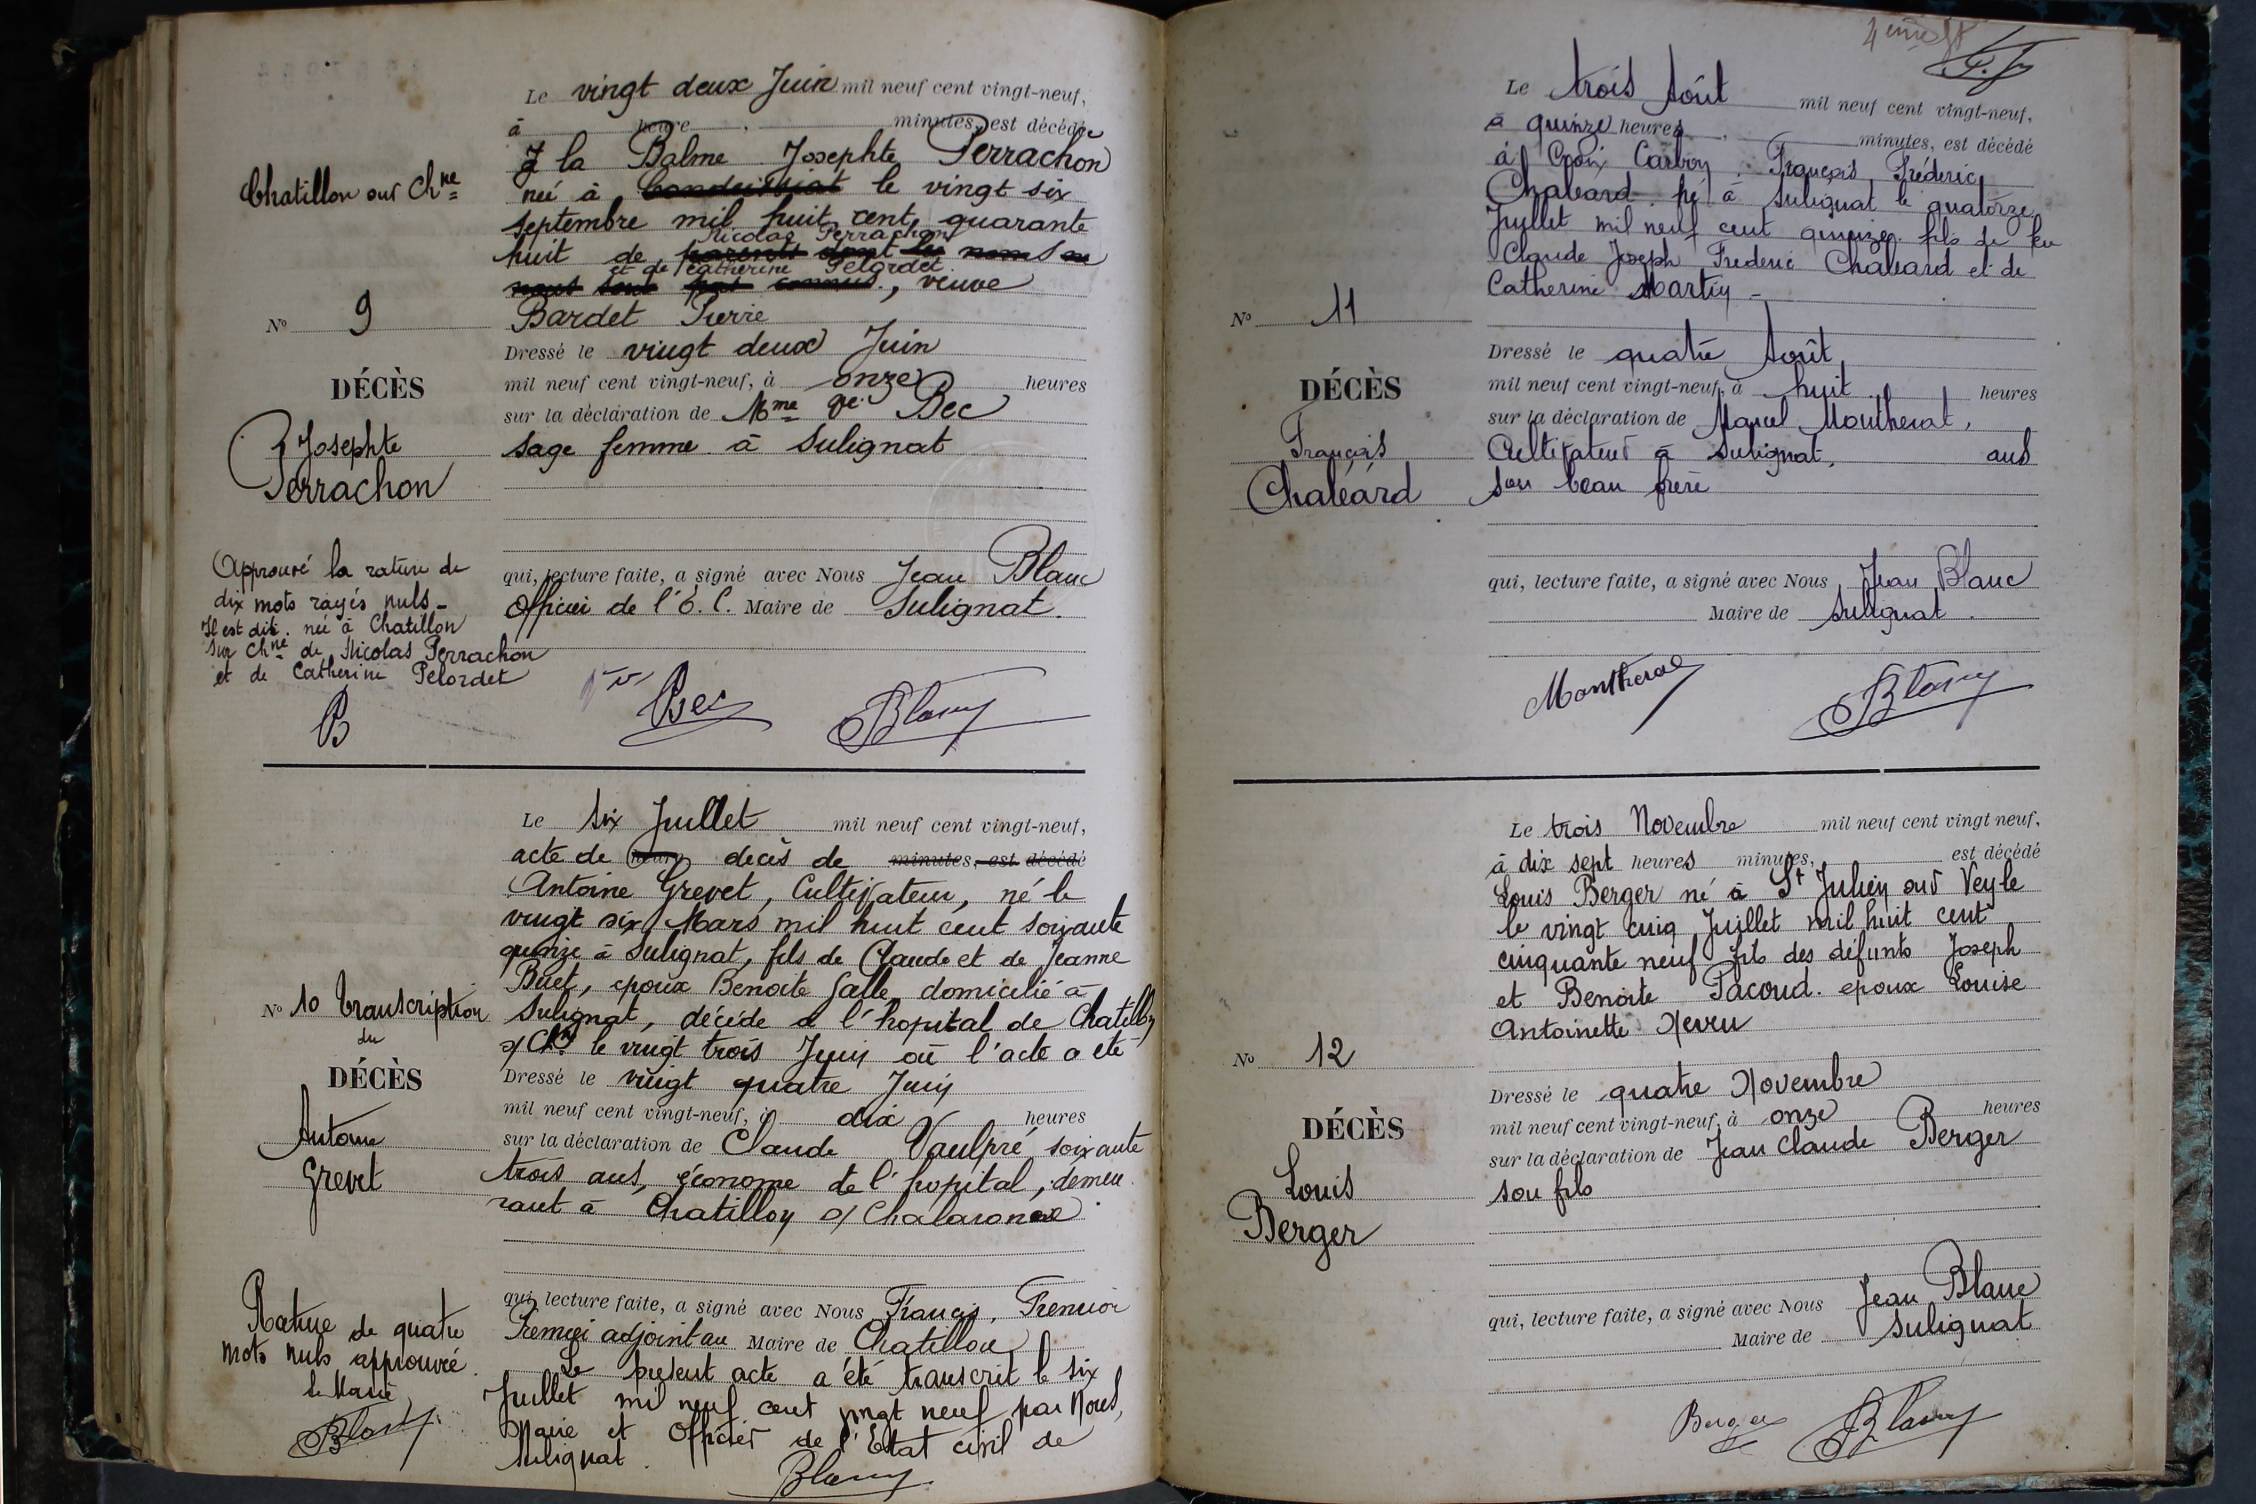 Le vingt deux Juin mil neuf cent vingt-neuf,
à heure minutes, est décédée
à la Balme Josephte Perrachon
Chatillon sur Chne
née à le vingt six
septembre mil huit cent quarante
Nicolas Perrachon
huit de parents dont les noms ne
et de Catherine Pelordet
nous sont pas connus, veuve
Bardet Pierre
N° 9
Dressé le vingt deux Juin
mil neuf cent vingt-neuf, à onze heures
DÉCÈS
sur la déclaration de Mme Ve Bec
Josephte
sage femme à Sulignat
Perrachon
Approuvé la rature de
dix mots rayés nuls -
Il est dit. née à Chatillon
sur Chne de Nicolas Perrachon
et de Catherine Pelordet
B
qui, lecture faite, a signé avec Nous Jean Blanc
Officier de l'E. C. Maire de Sulignat.
Bec Blanc
Le six Juillet mil neuf cent vingt-neuf,
acte de heure décès de minutes, est décédé
Antoine Grevet, Cultivateur, né le
vingt six Mars mil huit cent soixante
quinze à Sulignat, fils de Claude et de Jeanne
Buet, époux Benoite Galle domicilié à
N° 10 Transcription
du
Sulignat, décédé à l'hopital de Chatillon
s/ Chne le vingt trois Juin où l'acte a été
DÉCÈS
Dressé le vingt quatre Juin
mil neuf cent vingt-neuf, à dix heures
Antoine
Grevet
sur la déclaration de Claude Vaulpré, soixante
trois ans, économe de l'hopital, demeu
rant à Chatillon s/ Chalaronne
Rature de quatre
mots nuls approuvée
Le Maire
Blanc
qui, lecture faite, a signé avec Nous Francis,
Premier adjoint au Maire de Chatillon
Le présent acte a été transcrit le six
Juillet mil neuf cent vingt neuf par Nous,
Maire et Officier de l'Etat civil de
Sulignat.
Blanc
Le trois Août mil neuf cent vingt-neuf,
à quinze heures minutes, est décédé
à Croix Carbon, François Fréderic
Chaléard né à Sulignat le quatorze
Juillet mil neuf cent quinze fils de feu
Claude Joseph Frederic Chaléard et de
Catherine Martin -
N° 11
Dressé le quatre Août
DÉCÈS
mil neuf cent vingt-neuf, à huit heures
sur la déclaration de Marcel Montherat,
François
Cultivateur à Sulignat, ans
Chaléard
son beau frère
qui, lecture faite, a signé avec Nous Jean Blanc
Maire de Sulignat.
Montherat Blanc
Le trois Novembre mil neuf cent vingt neuf,
à dix sept heures minutes, est décédé
Louis Berger né à St Julien sur Veyle
le vingt cinq Juillet mil huit cent
cinquante neuf fils des défunts Joseph
et Benoite Pacoud. époux Louise
Antoinette
N° 12
Dressé le quatre Novembre
DÉCÈS
mil neuf cent vingt-neuf, à onze heures
sur la déclaration de Jean Claude Berger
Louis
son fils
Berger
qui, lecture faite, a signé avec Nous Jean Blanc
Maire de Sulignat
Berger Blanc